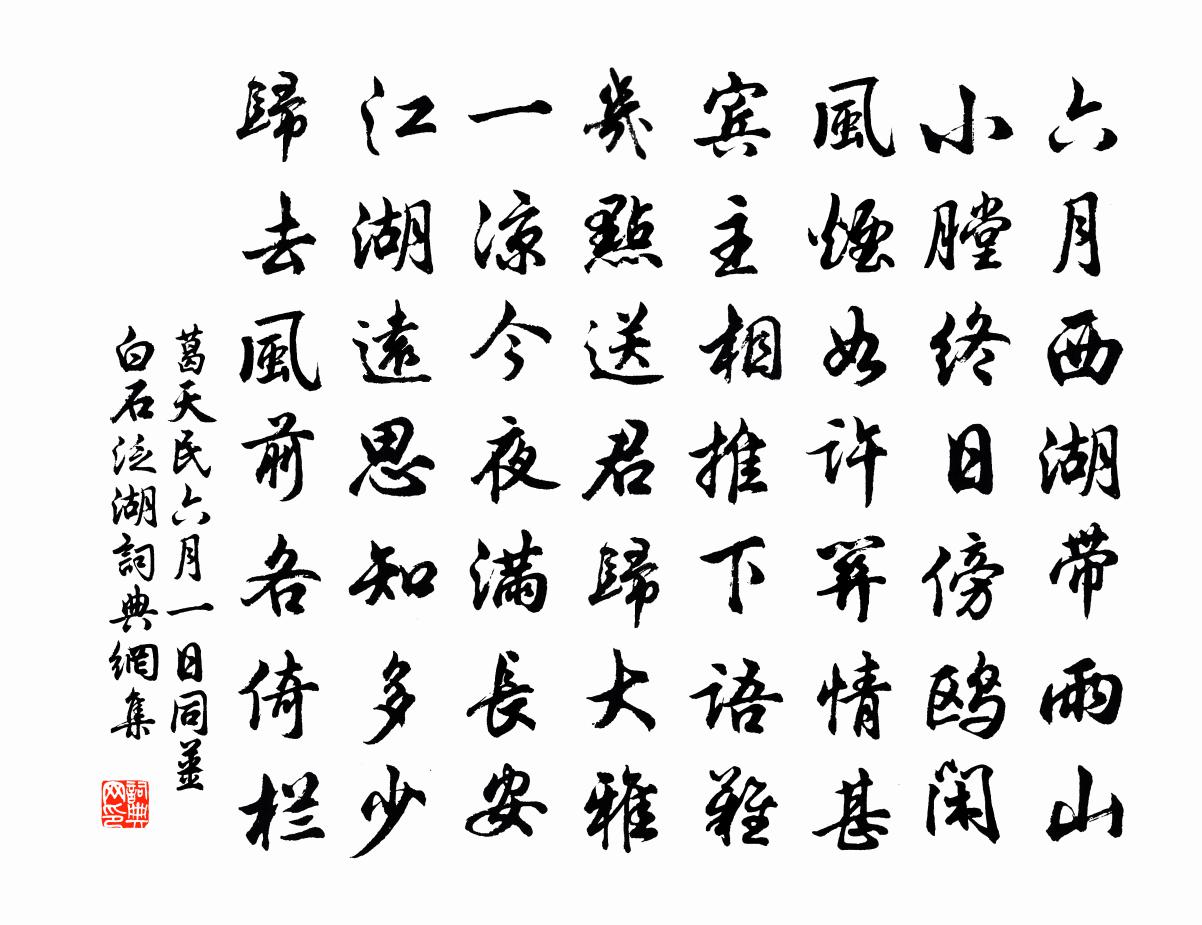 六月西湖帶雨山
小膛終日傍鷗閑
風煙如許關情甚
宾主相推下語難
幾點送君歸大雅
一涼今夜滿長安
江湖遠思知多少
歸去風前各倚栏
葛天民六月一日同姜
白石泛湖詞典網集
詞典网印